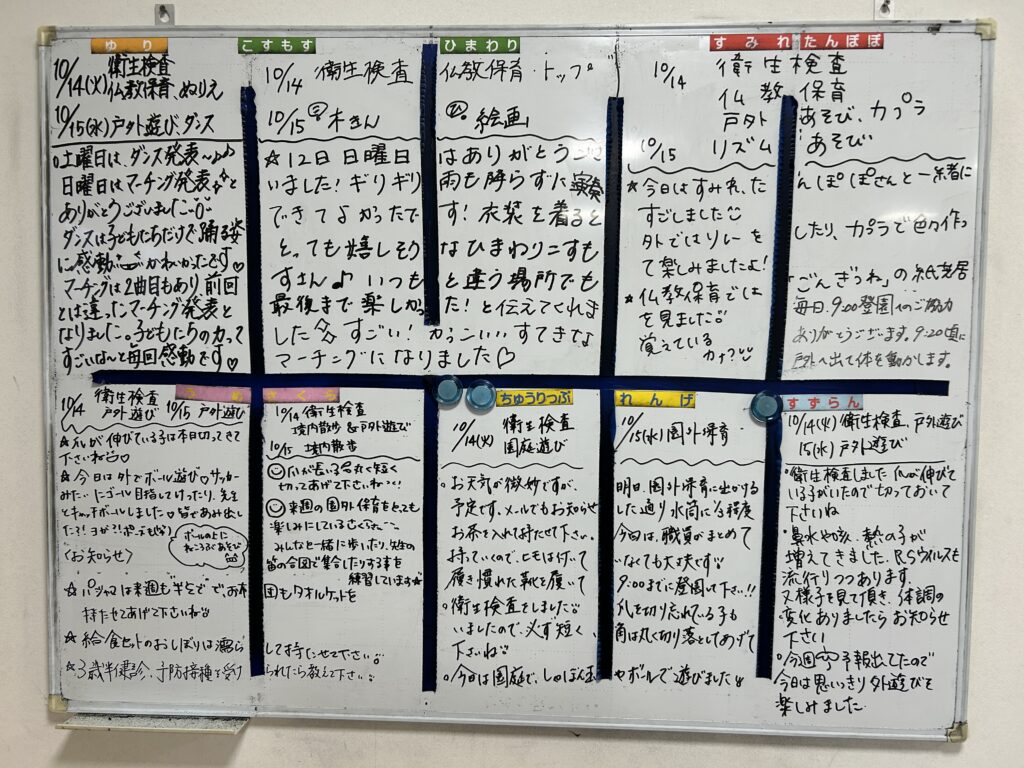 ゆり
10/14(火) 衛生検査
仏教保育、ぬりえ
10/15(水) 戸外遊び、ダンス
土曜日は、ダンス発表〜♪♪
日曜日はマーチング発表と
ありがとうございました
ダンスは子どもたちだけで踊る姿
に感動 かわいかったです♡
マーチングは2曲目もあり、前回
とは違ったマーチング発表と
なりました。子どもたちの力って
すごいな〜と毎回感動です♡
こすもす ひまわり
10/14 衛生検査 仏教保育・トップ
10/15 木きん 絵画
☆12日 日曜日はありがとう
いました!ギリギリ雨も降らずに演奏
できてよかったです!衣装を着ると
とっても嬉しそうなひまわりこすも
すさん♪いつもと違う場所でも
最後まで楽しかった!と伝えてくれま
した すごい!かっこいい すてきな
マーチングになりました♡
すみれ たんぽぽ
10/14 衛生検査
仏教保育
戸外あそび、カプラ
10/15 リズムあそび
★今日はすみれ、たんぽぽさんと一緒に
すごしました
外ではリレーをしたり、カプラで色々作っ
て楽しみましたよ!
★仏教保育では「ごんぎつね」の紙芝居
を見ました
覚えているカナ?
毎日、9:00登園のご協力
ありがとうございます。9:20頃に
戸外へ出て体を動かします。
10/14 衛生検査 戸外遊び
10/15 戸外遊び
☆爪が伸びている子は本日切ってきて
下さいね♡
☆今日は外でボール遊び♡サッカー
みたいにゴール目指してけったり、先生
とキャッチボールしました
ボールの上に
ねころぶあそび
〈お知らせ〉
☆パジャマは来週も半そでで、お布
持たせてあげて下さいね
☆給食セットのおしぼりは濡ら
して持たせて下さい
☆3歳半健診、予防接種を受け
られたら教えて下さい
さくら
10/14 衛生検査
境内散歩&戸外遊び
10/15 境内散歩
爪が長い子 丸く短く
切ってあげて下さいね
来週の園外保育をとても
楽しみにしている
みんなと一緒に歩いたり、先生の
笛の合図で集合したりする事を
練習しています★
団もタオルケットを
ちゅうりっぷ れんげ
10/14(火) 衛生検査
園庭遊び
10/15(水) 園外保育
お天気が微妙ですが、明日、園外保育に出かける
予定です。メールでもお知らせした通り水筒に1/2程度
お茶を入れて持たせて下さい。今回は、職員がまとめて
持っていくので、ヒモは付けていなくても大丈夫です
履き慣れた靴を履いて9:00までに登園して下さい!!
衛生検査をしました 爪を切り忘れている子も
いましたので、必ず短く、角は丸く切り落としてあげて
下さいね
今日は園庭で、しゃぼん玉やボールで遊びました
すずらん
10/14(火) 衛生検査、戸外遊び
15(水) 戸外遊び
衛生検査しました 爪が伸びて
いる子がいたので切っておいて
下さいね
鼻水や咳、熱の子が
増えてきました。RSウイルスも
流行りつつあります。
様子を見て頂き、体調の
変化ありましたらお知らせ
下さい
今週 予報出てたので
今日は思いっきり外遊びを
楽しみました